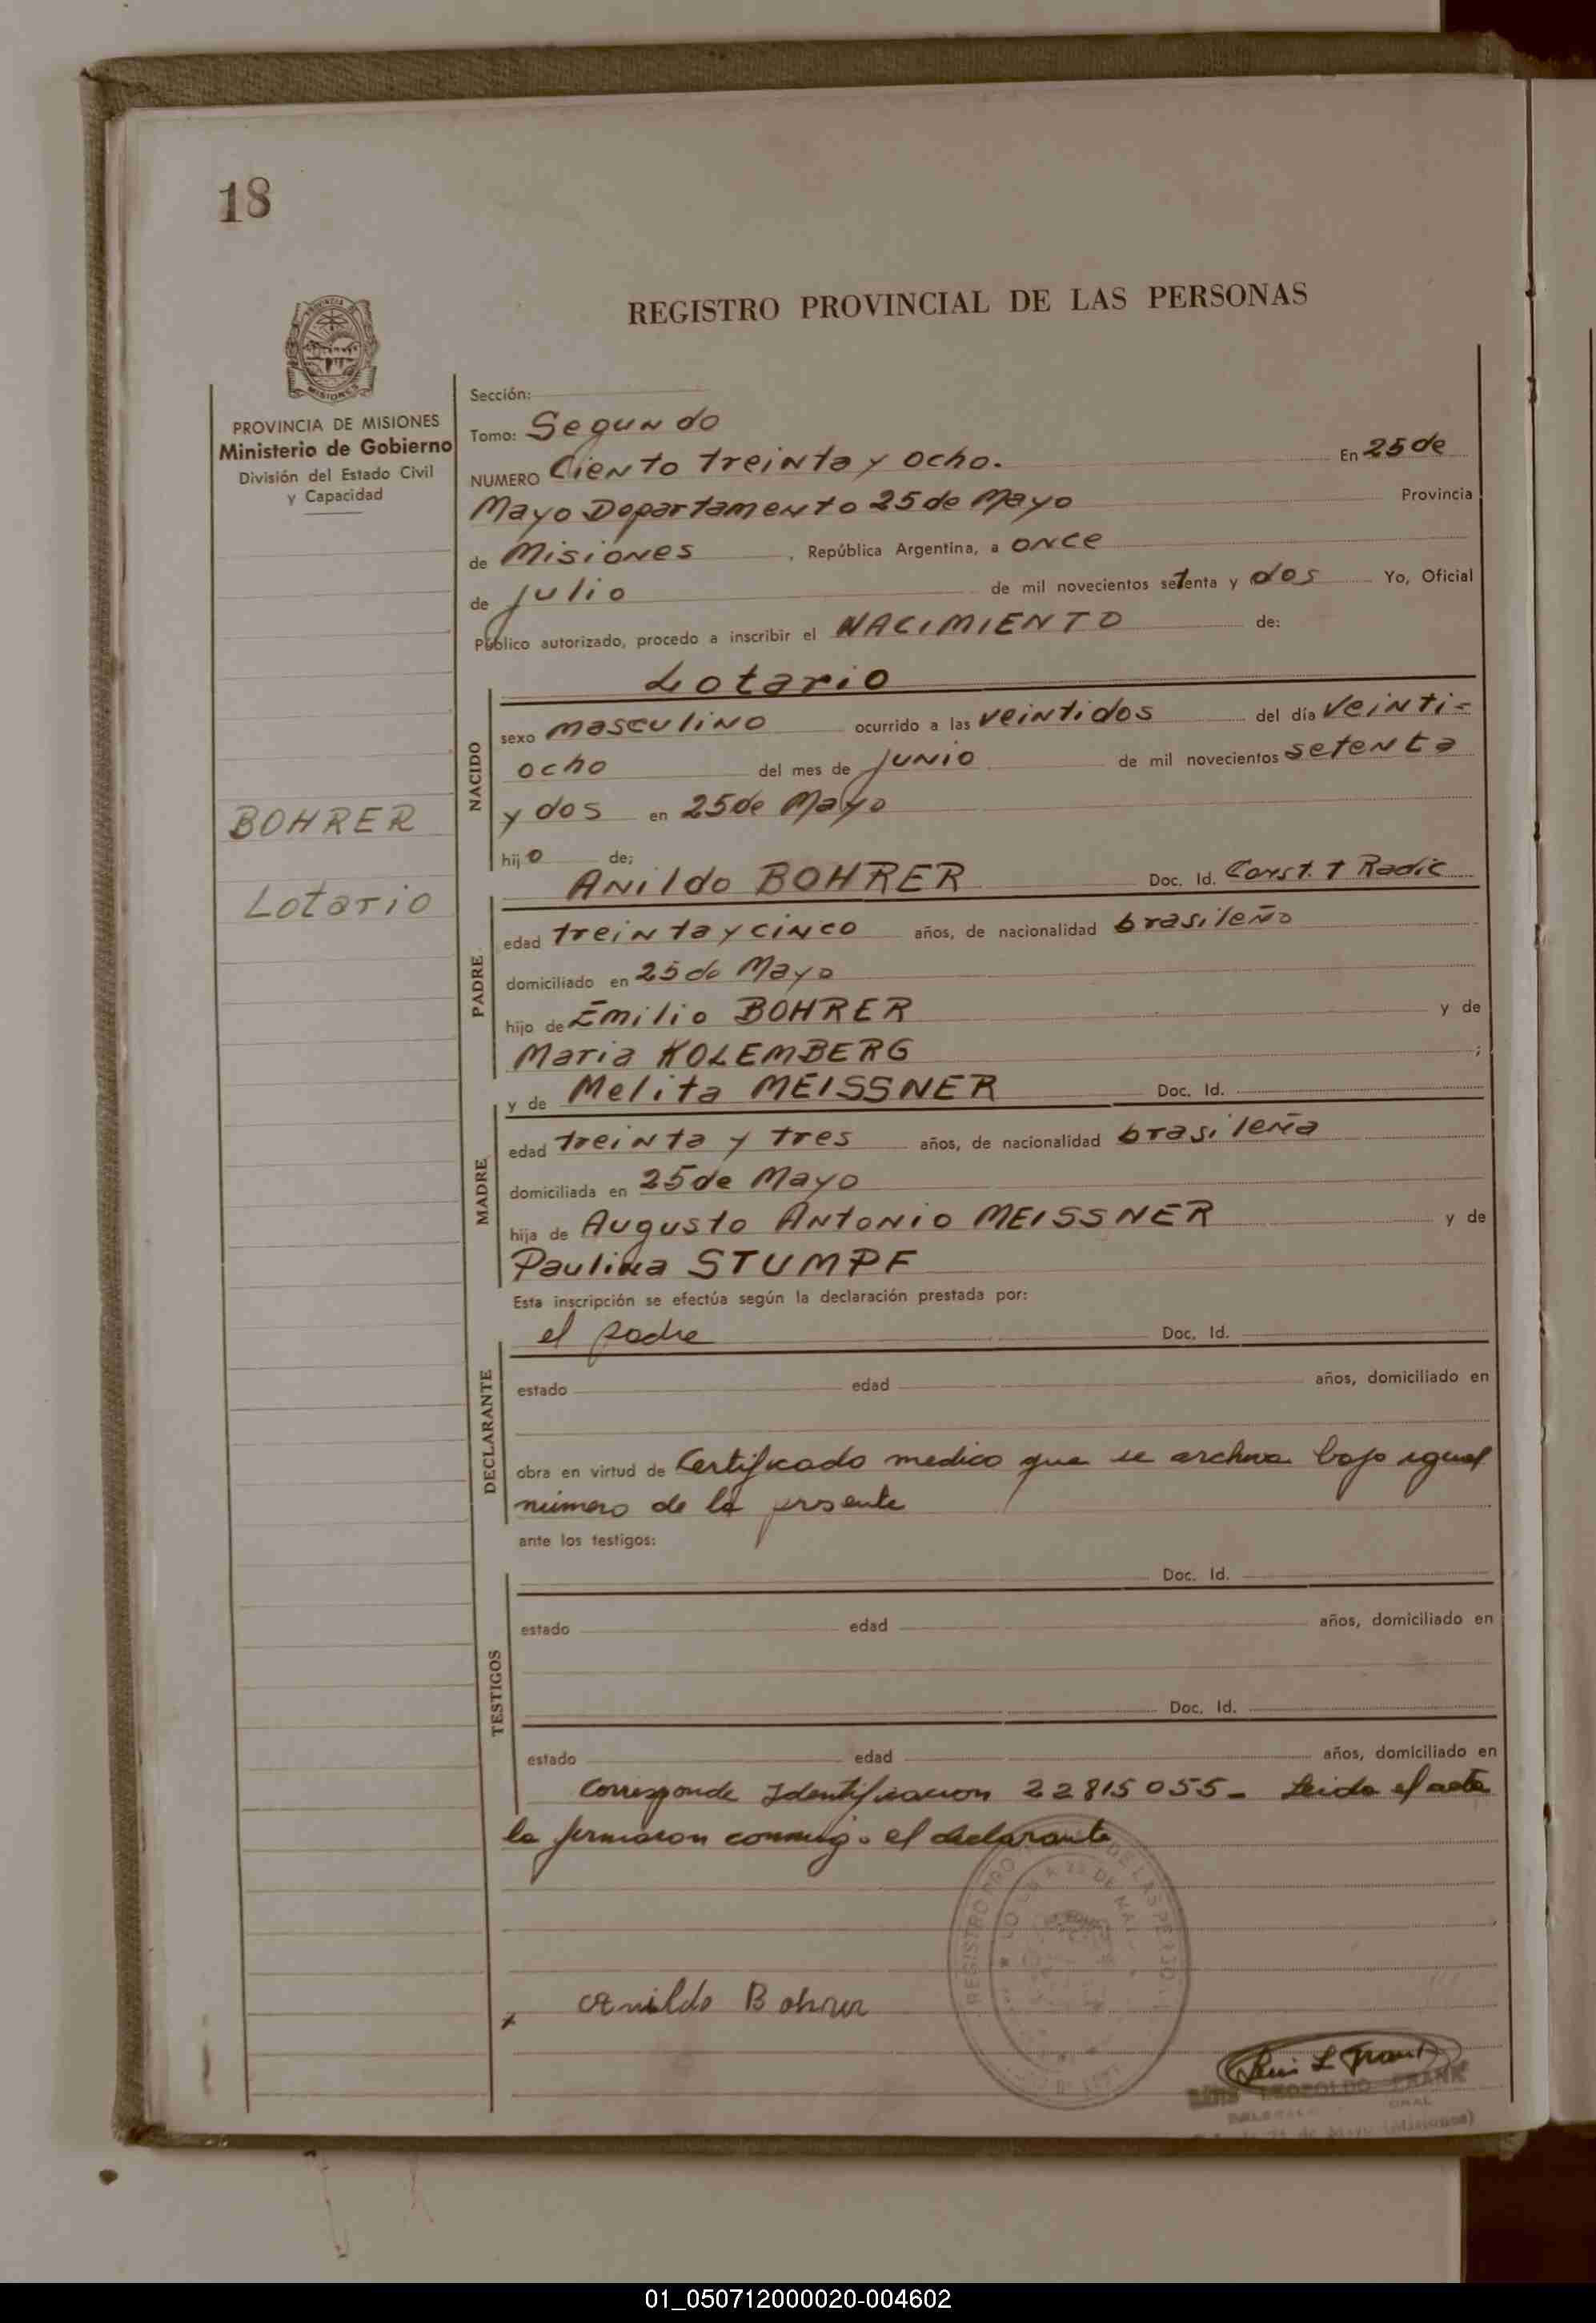 18
REGISTRO PROVINCIAL DE LAS PERSONAS
PROVINCIA DE MISIONES
Ministerio de Gobierno
División del Estado Civil
y Capacidad
BOHRER
Lotario
Sección:
Tomo: Segundo
NUMERO Ciento treinta y ocho. En 25 de
Mayo Departamento 25 de Mayo Provincia
de Misiones, República Argentina, a once
de julio de mil novecientos setenta y dos Yo, Oficial
Público autorizado, procedo a inscribir el NACIMIENTO de:
Lotario
NACIDO
sexo masculino ocurrido a las veintidos del día veinti-
ocho del mes de junio de mil novecientos setenta
y dos en 25 de Mayo
hijo de;
Anildo BOHRER Doc. Id. Const. t Radic
PADRE
edad treinta y cinco años, de nacionalidad brasileño
domiciliado en 25 de Mayo
hijo de Emilio BOHRER y de
Maria KOLEMBERG ;
y de Melita MEISSNER Doc. Id.
MADRE
edad treinta y tres años, de nacionalidad brasileña
domiciliada en 25 de Mayo
hija de Augusto Antonio MEISSNER y de
Paulina STUMPF
Esta inscripción se efectúa según la declaración prestada por:
el padre Doc. Id.
DECLARANTE
estado edad años, domiciliado en
obra en virtud de Certificado medico que se archiva bajo igual
número de la presente
ante los testigos:
Doc. Id.
TESTIGOS
estado edad años, domiciliado en
Doc. Id.
estado edad años, domiciliado en
Corresponde Identificacion 22815055- Leida el acta
la firmaron conmigo el declarante
REGISTRO DE LAS
25 DE MAY
x Anildo Bohrer
Luis L Frank
LUIS LEOPOLDO FRANK
de Mayo (Misiones)
01_050712000020-004602